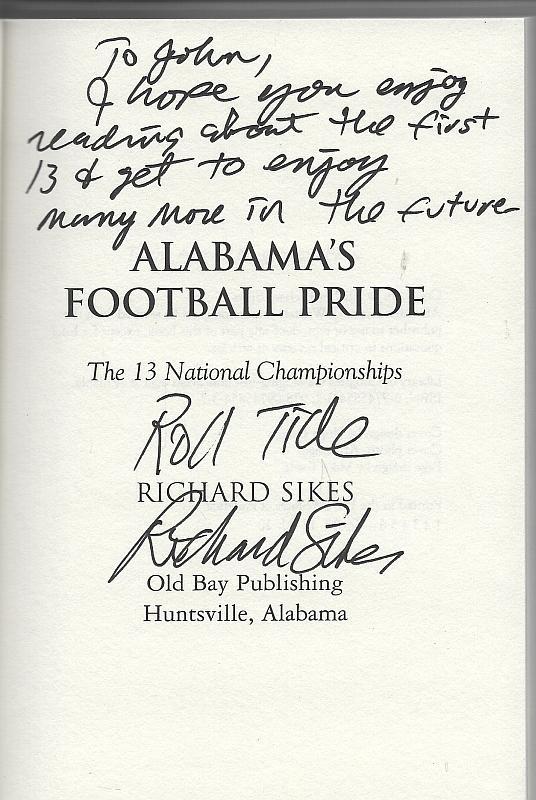 To John,
I hope you enjoy
reading about the first
13 & get to enjoy
many more in the future
ALABAMA'S
FOOTBALL PRIDE
The 13 National Championships
Roll Tide
RICHARD SIKES
Richard Sikes
Old Bay Publishing
Huntsville, Alabama